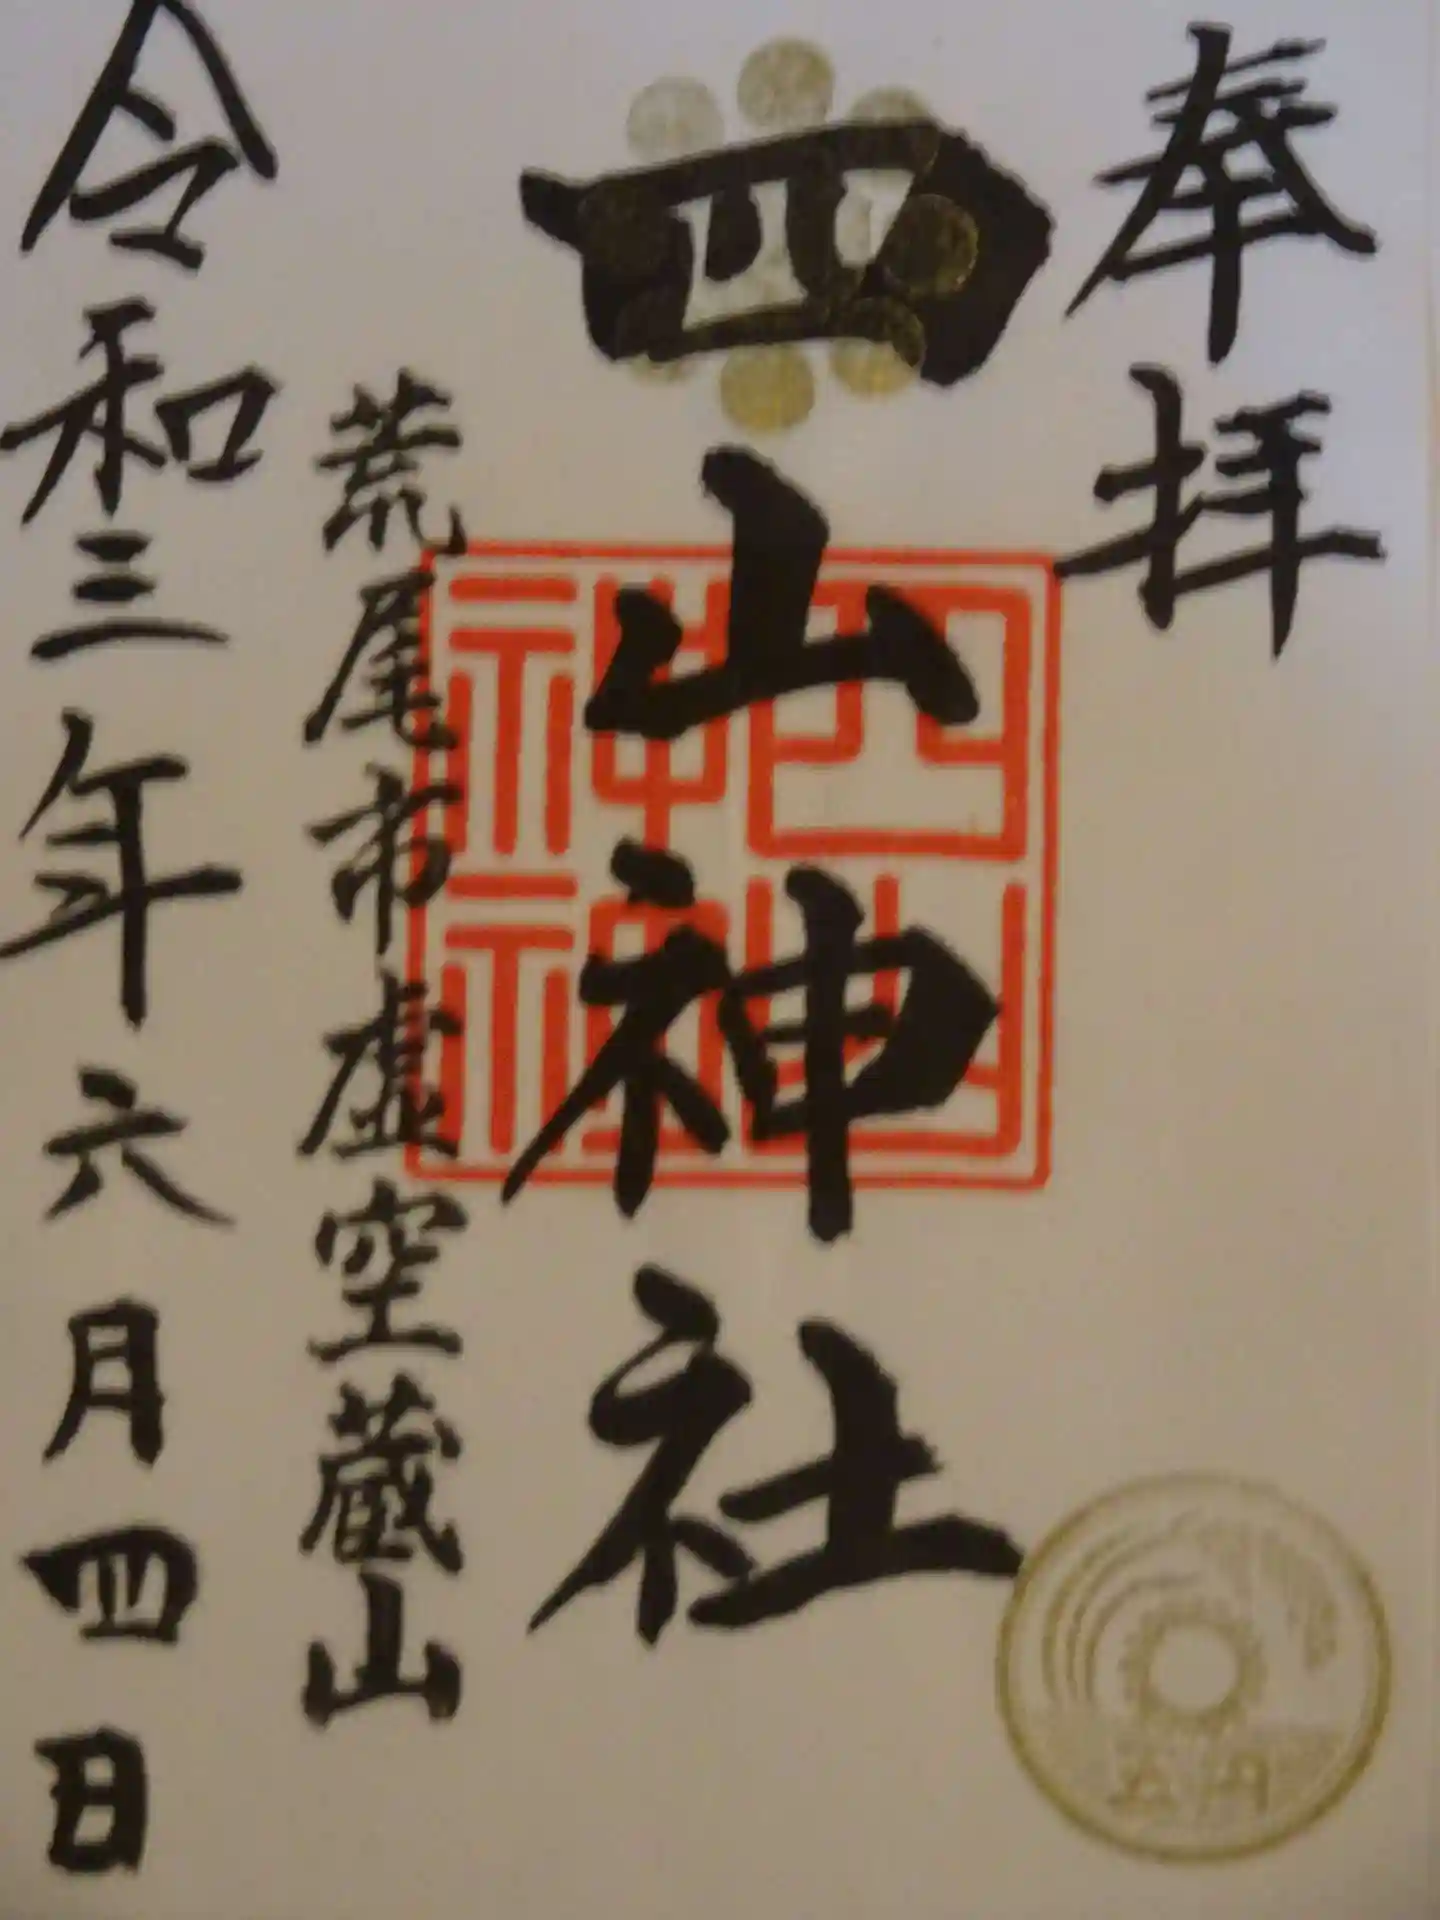 奉拝
四山神社
四山神社
荒尾市虚空蔵山
令和三年六月四日
五円